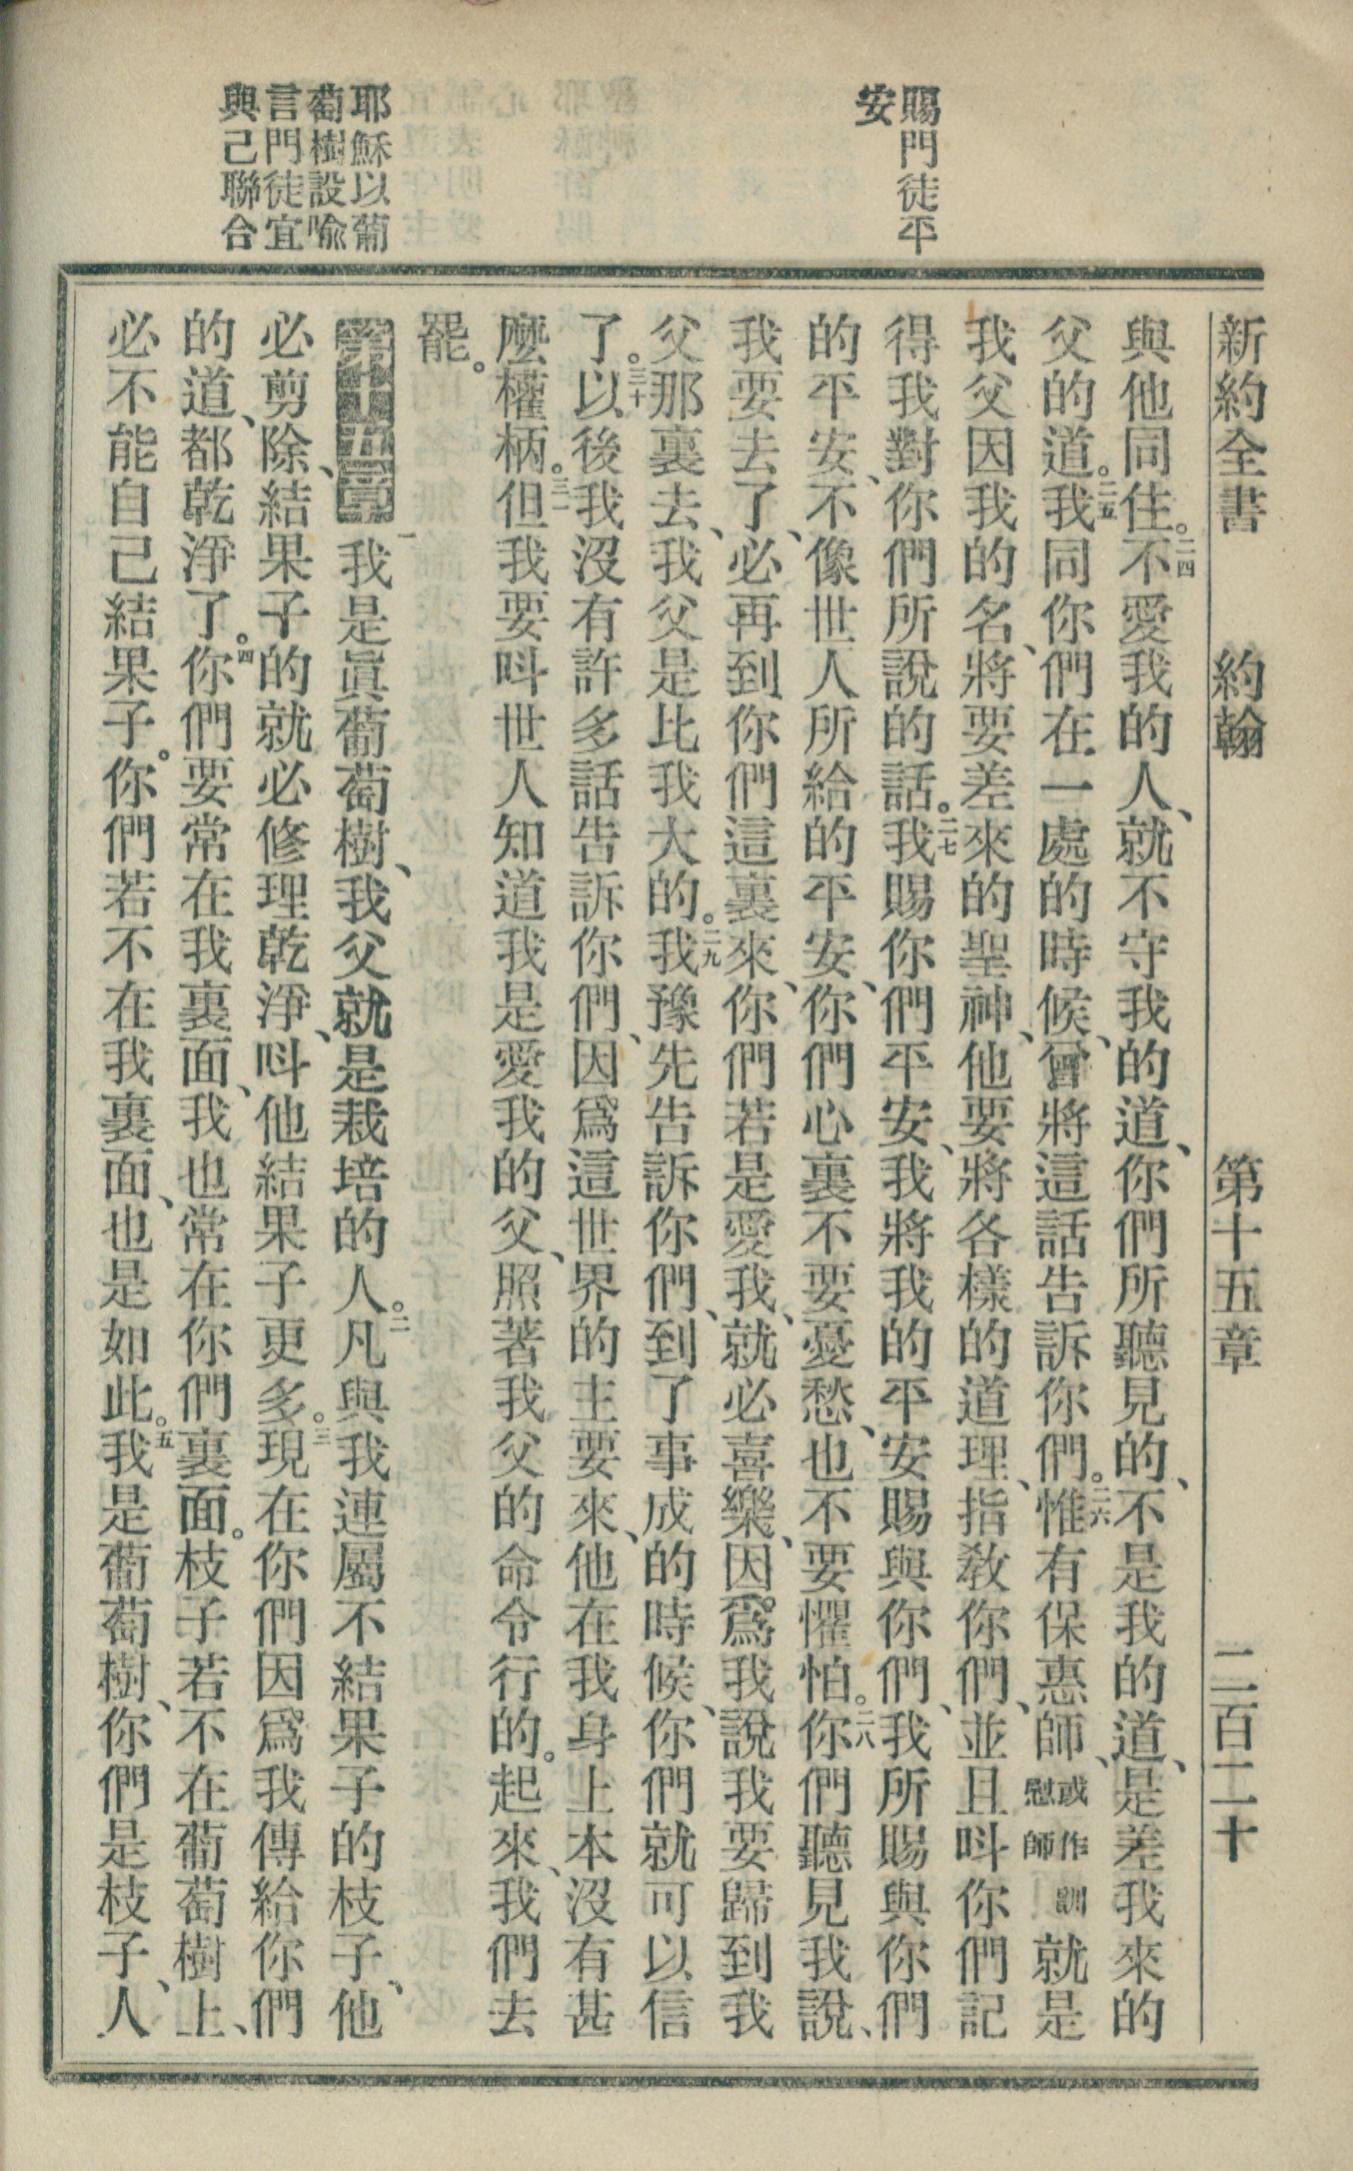 新約全書　約翰　第十五章　二百二十
賜門徒平
安
與他同住。二四不愛我的人、就不守我的道、你們所聽見的、不是我的道、是差我來的
父的道。二五我同你們在一處的時候、曾將這話告訴你們。二六惟有保惠師、或作訓慰師就是
我父因我的名、將要差來的聖神、他要將各樣的道理、指教你們、並且呌你們記
得我對你們所說的話。二七我賜你們平安、我將我的平安賜與你們、我所賜與你們
的平安、不像世人所給的平安、你們心裏不要憂愁、也不要懼怕。二八你們聽見我說、
我要去了、必再到你們這裏來、你們若是愛我、就必喜樂、因爲我說我要歸到我
父那裏去、我父是比我大的。二九我豫先告訴你們、到了事成的時候、你們就可以信
了。三十以後我沒有許多話告訴你們、因爲這世界的主要來、他在我身上本沒有甚
麼權柄。三一但我要呌世人知道我是愛我的父、照著我父的命令行的。起來、我們去
罷。
耶穌以葡
萄樹設喻
言門徒宜
與己聯合
第十五章 一我是眞葡萄樹、我父就是栽培的人。二凡與我連屬不結果子的枝子、他
必剪除、結果子的就必修理乾淨、呌他結果子更多。三現在你們因爲我傳給你們
的道、都乾淨了。四你們要常在我裏面、我也常在你們裏面。枝子若不在葡萄樹上、
必不能自己結果子。你們若不在我裏面、也是如此。五我是葡萄樹、你們是枝子、人